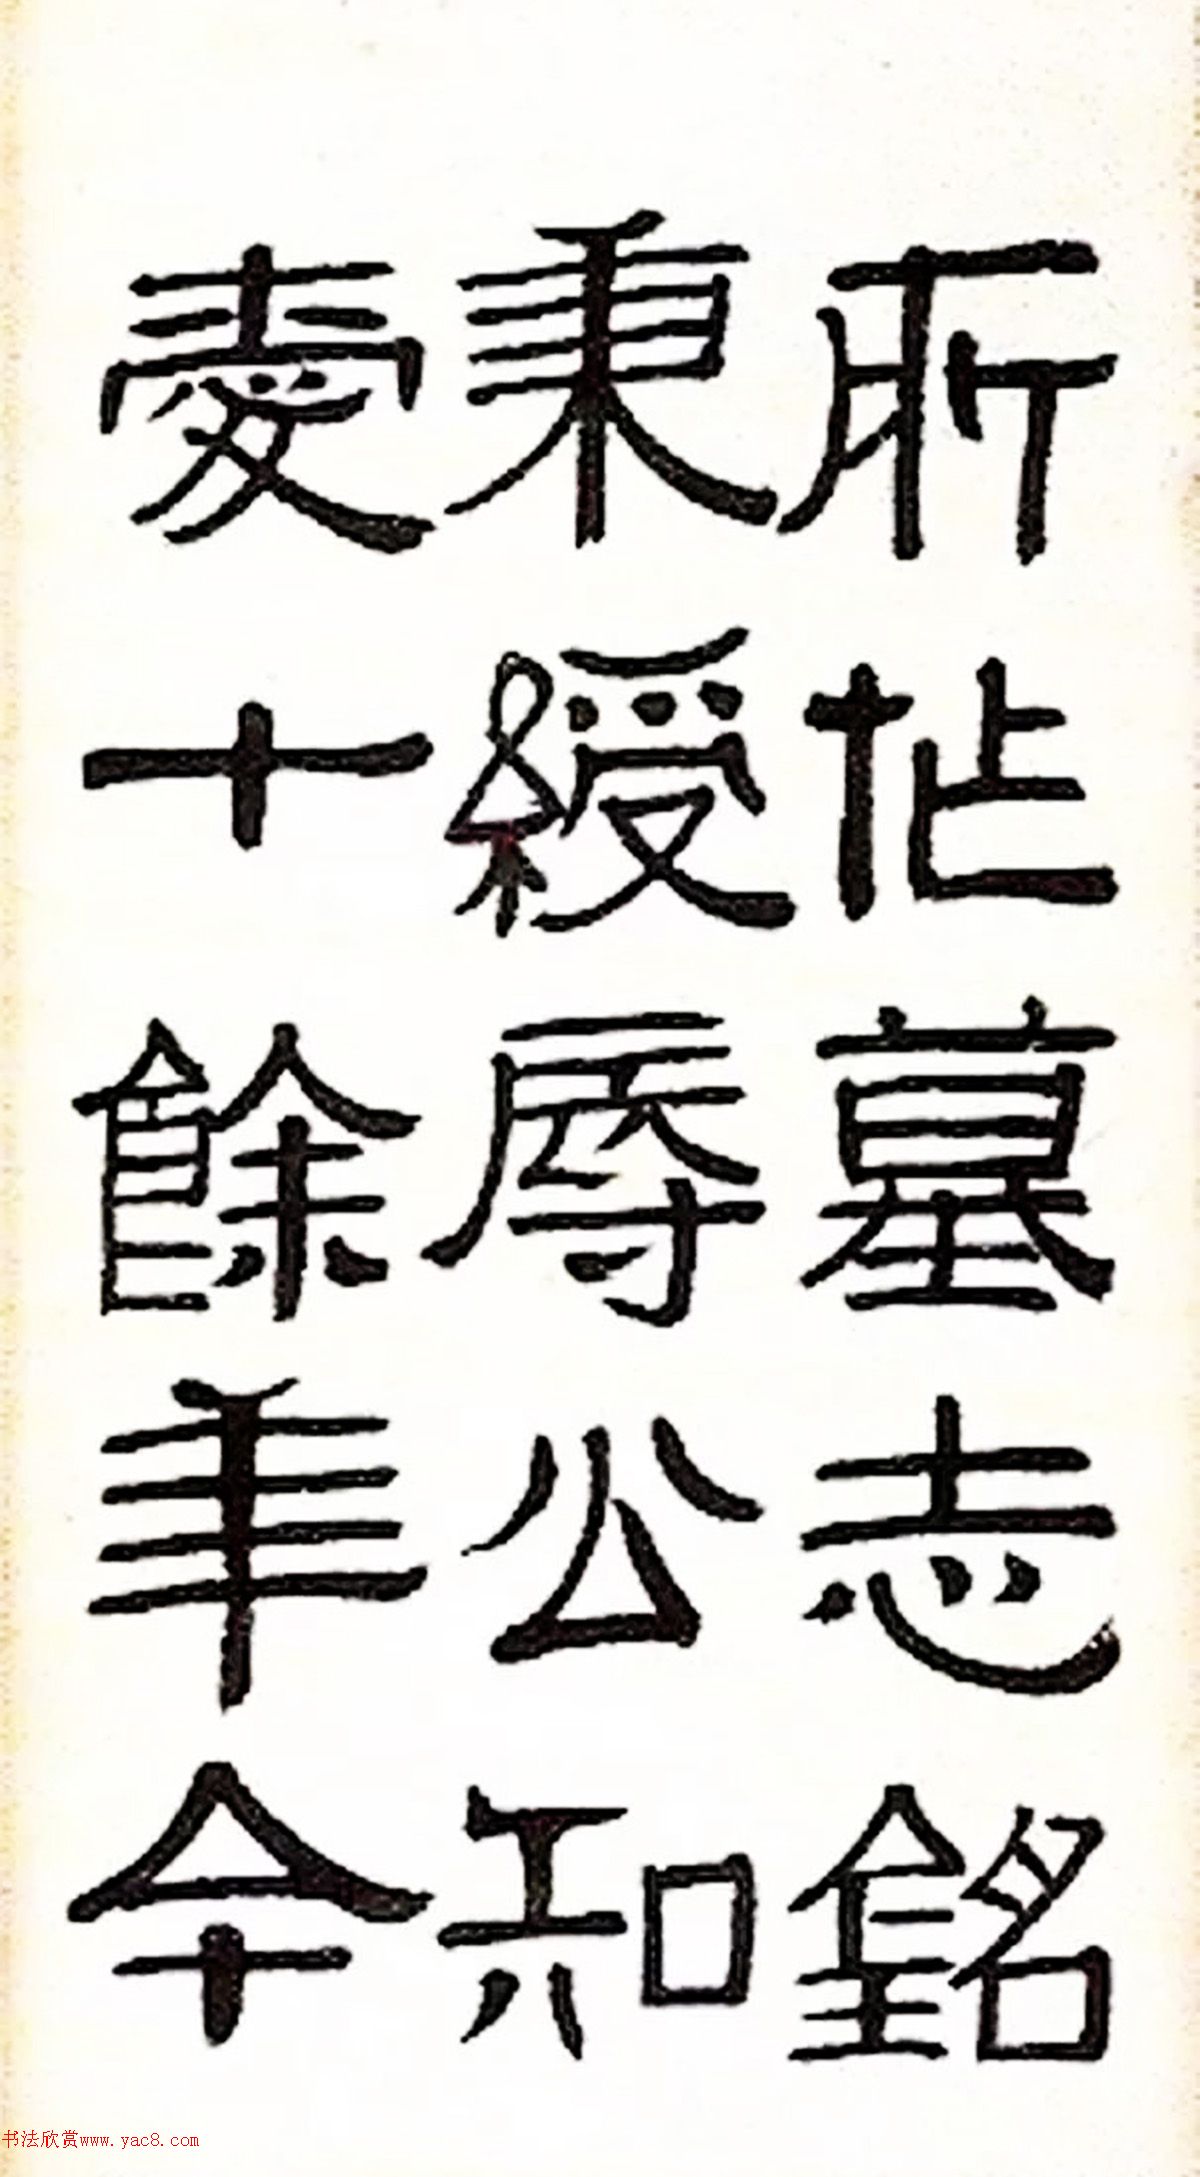 所作墓志銘
秉綬辱公知
愛十餘年今
书法欣赏www.yac8.com